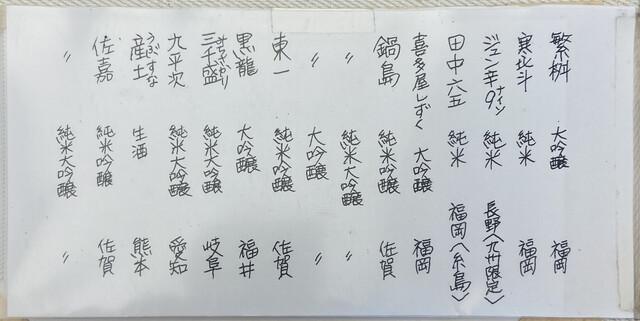 繁桝 大吟醸 福岡
寒北斗 純米 福岡
ジュン辛9ナイン 純米 長野〈九州限定〉
田中六五 純米 福岡〈糸島〉
喜多屋しずく 大吟醸 福岡
鍋島 純米吟醸 佐賀
〃 純米大吟醸 〃
〃 大吟醸 〃
東一 純米吟醸 佐賀
黒龍 大吟醸 福井
三千盛みちさかり 純米大吟醸 岐阜
九平次 純米大吟醸 愛知
産土うぶすな 生酒 熊本
佐嘉 純米吟醸 佐賀
〃 純米大吟醸 〃